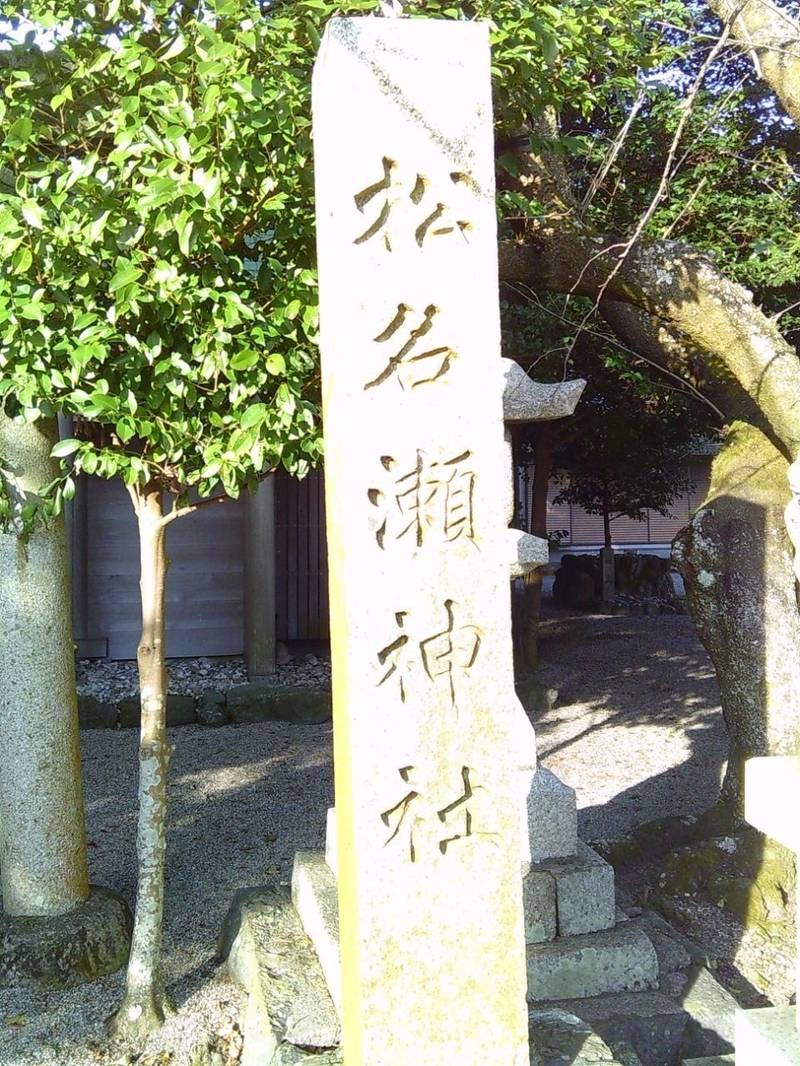 松名瀬神社